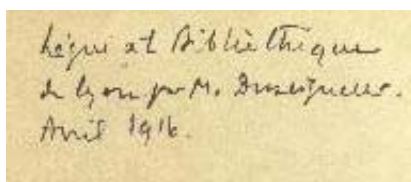 Légué at Bibliothèque
de Lyon par M. Duseigneur.
Avril 1916.